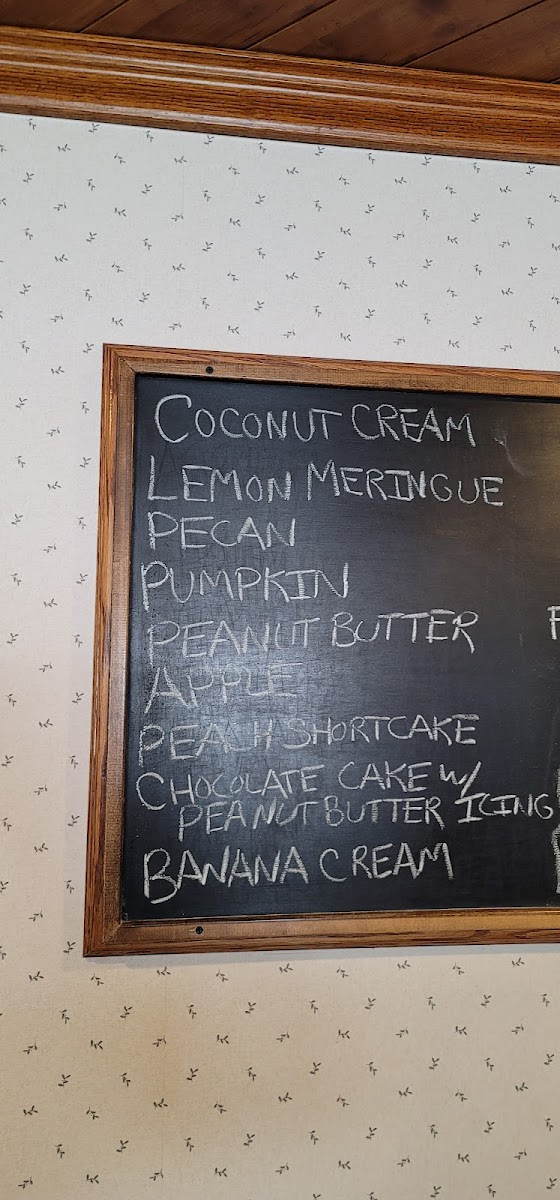 COCONUT CREAM
LEMON MERINGUE
PECAN
PUMPKIN
PEANUT BUTTER
APPLE
PEACH SHORTCAKE
CHOCOLATE CAKE W/
PEANUT BUTTER ICING
BANANA CREAM